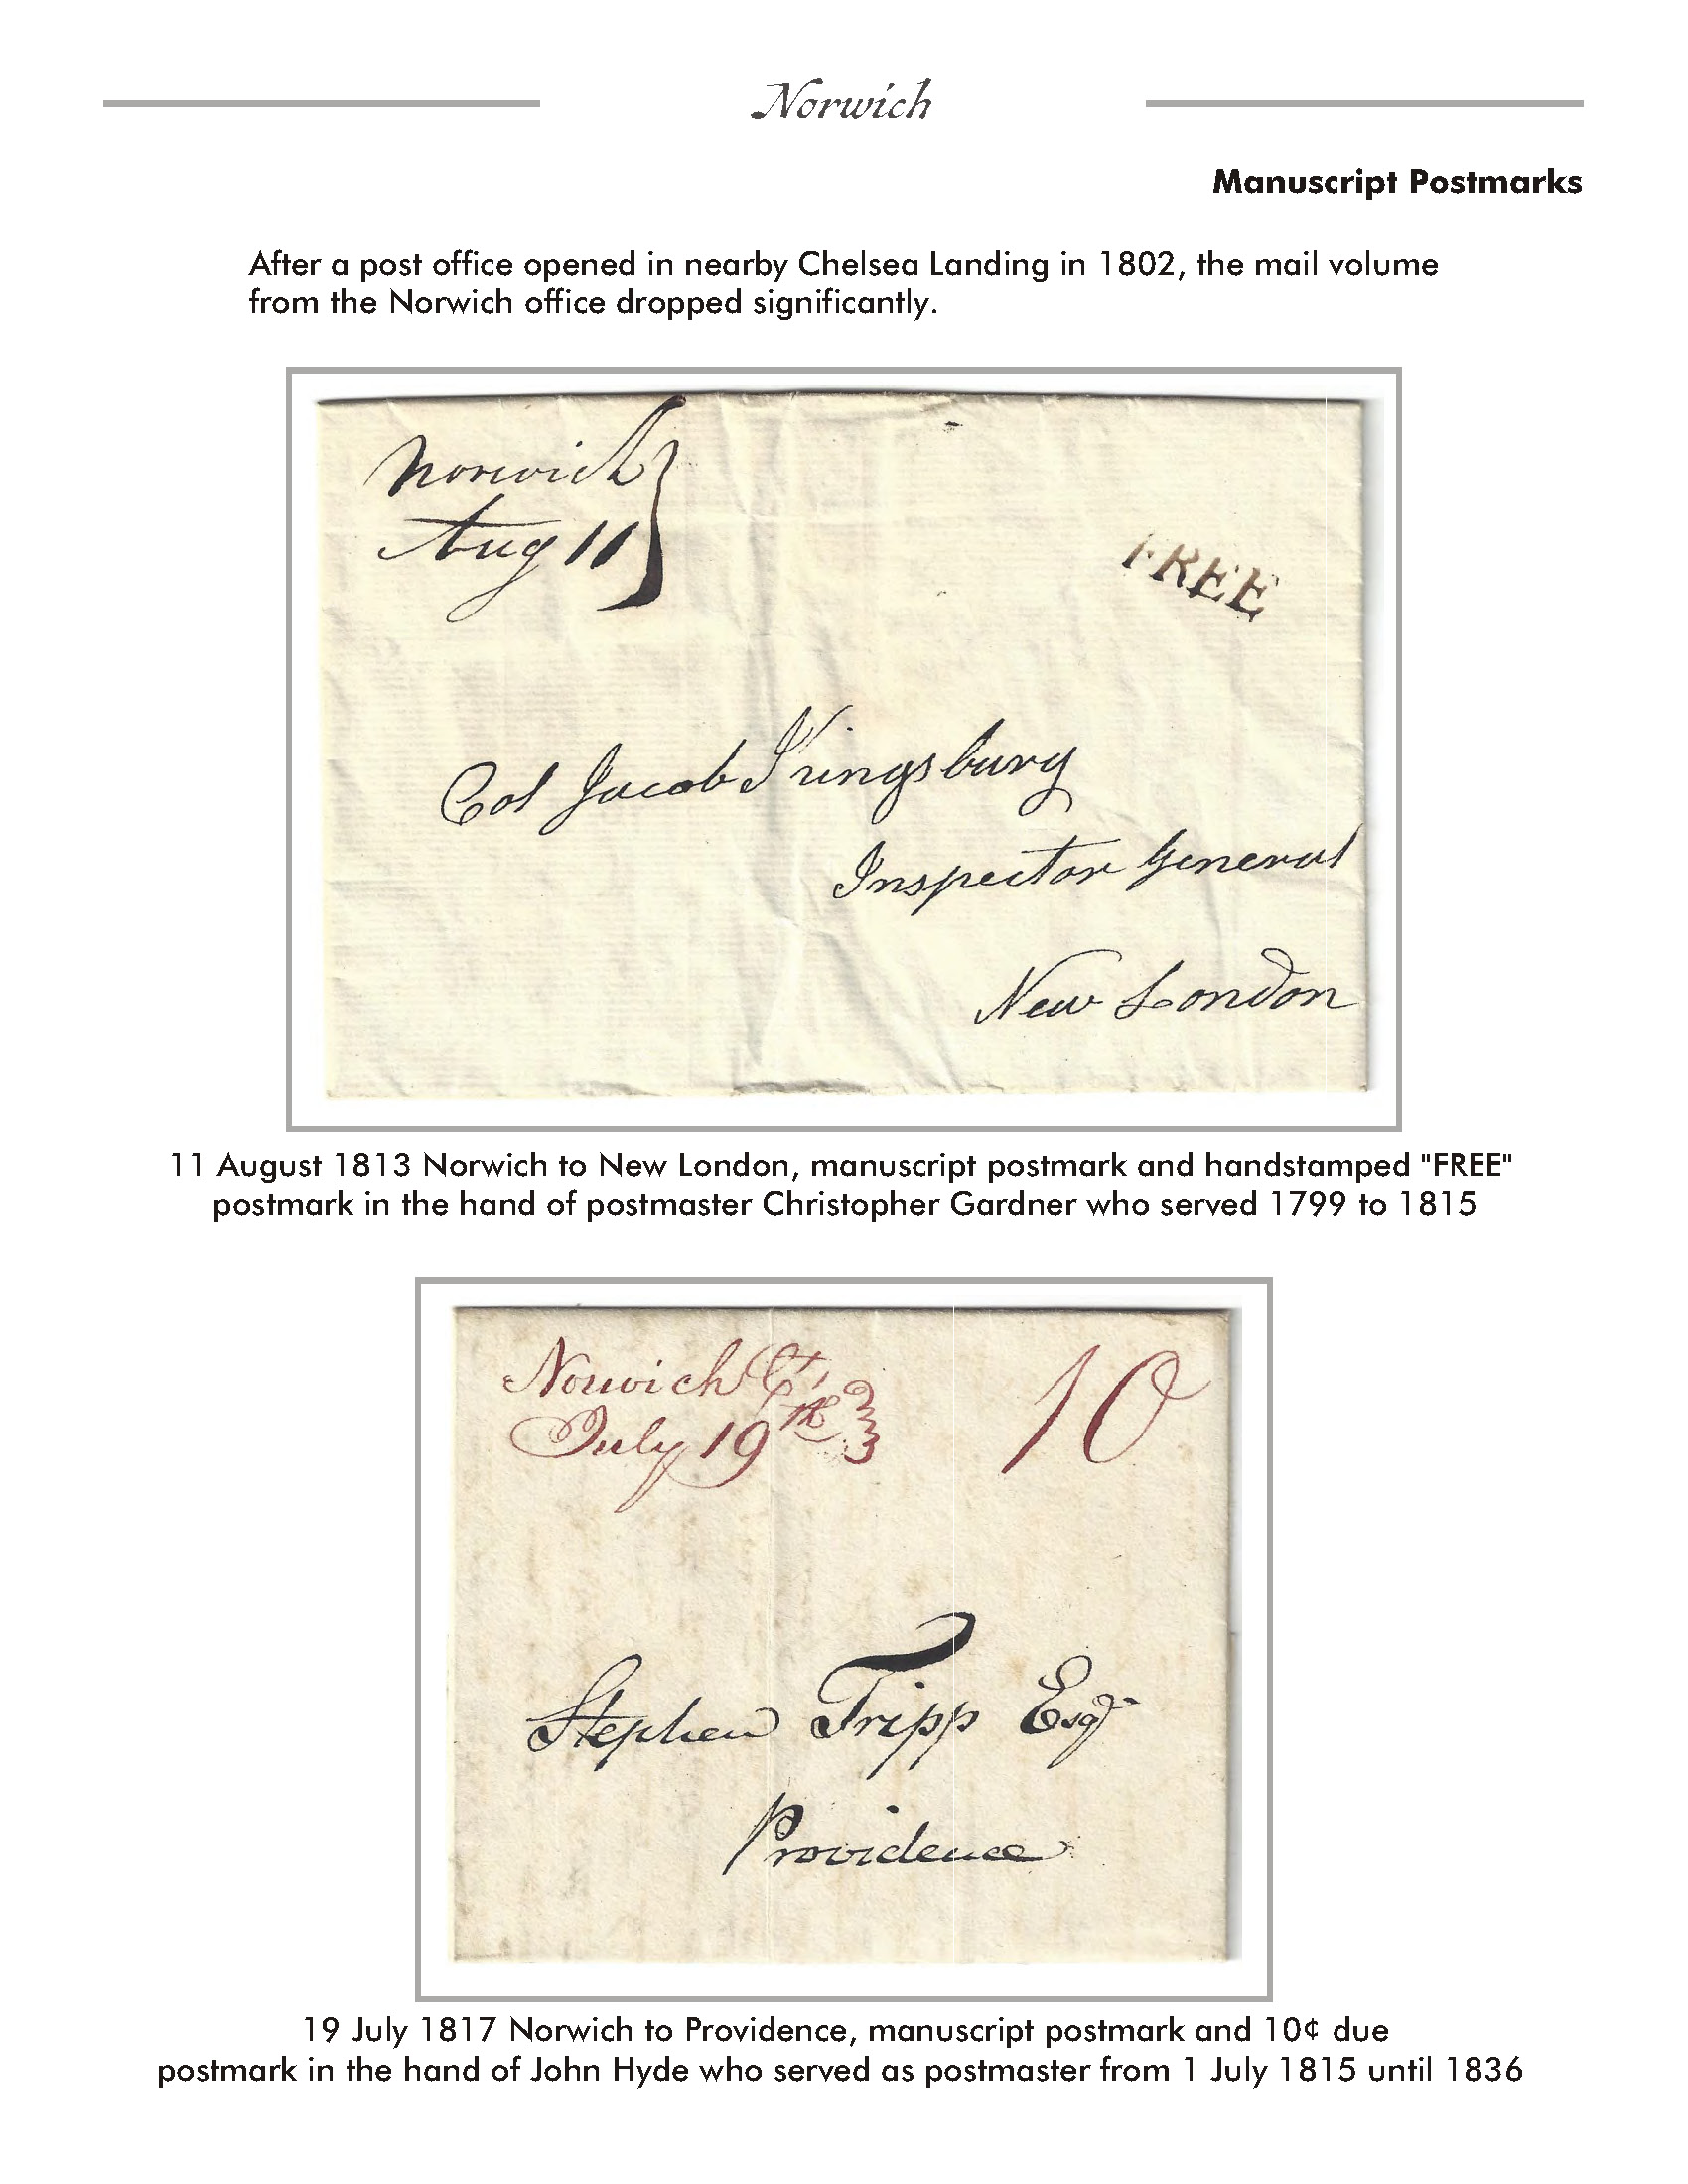 Norwich
Manuscript Postmarks
After a post office opened in nearby Chelsea Landing in 1802, the mail volume
from the Norwich office dropped significantly.
Norwich
Aug 11
FREE
Col Jacob Kingsbury
Inspector General
New London
11 August 1813 Norwich to New London, manuscript postmark and handstamped "FREE"
postmark in the hand of postmaster Christopher Gardner who served 1799 to 1815
Norwich Ct,
July 19th
10
Stephen Tripp Esqr
Providence
19 July 1817 Norwich to Providence, manuscript postmark and 10¢ due
postmark in the hand of John Hyde who served as postmaster from 1 July 1815 until 1836